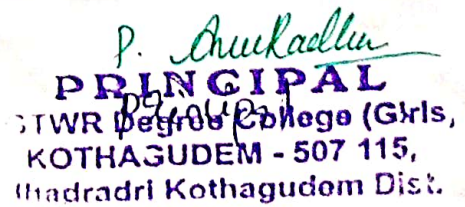 P. Anuradha
PRINCIPAL
Principal
TWR Degree College (Girls,
KOTHAGUDEM - 507 115,
hadradri Kothagudem Dist.